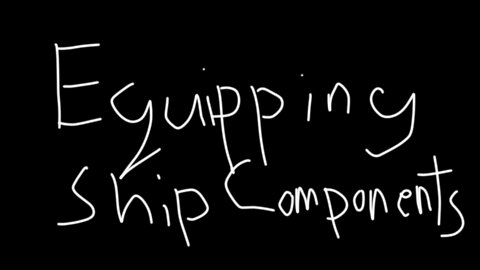 Equipping
Ship Components